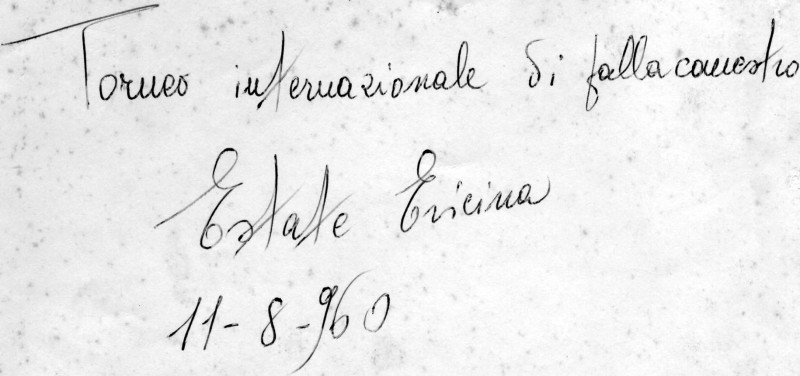 Torneo internazionale di pallacanestro
Estate Ericina
11-8-960